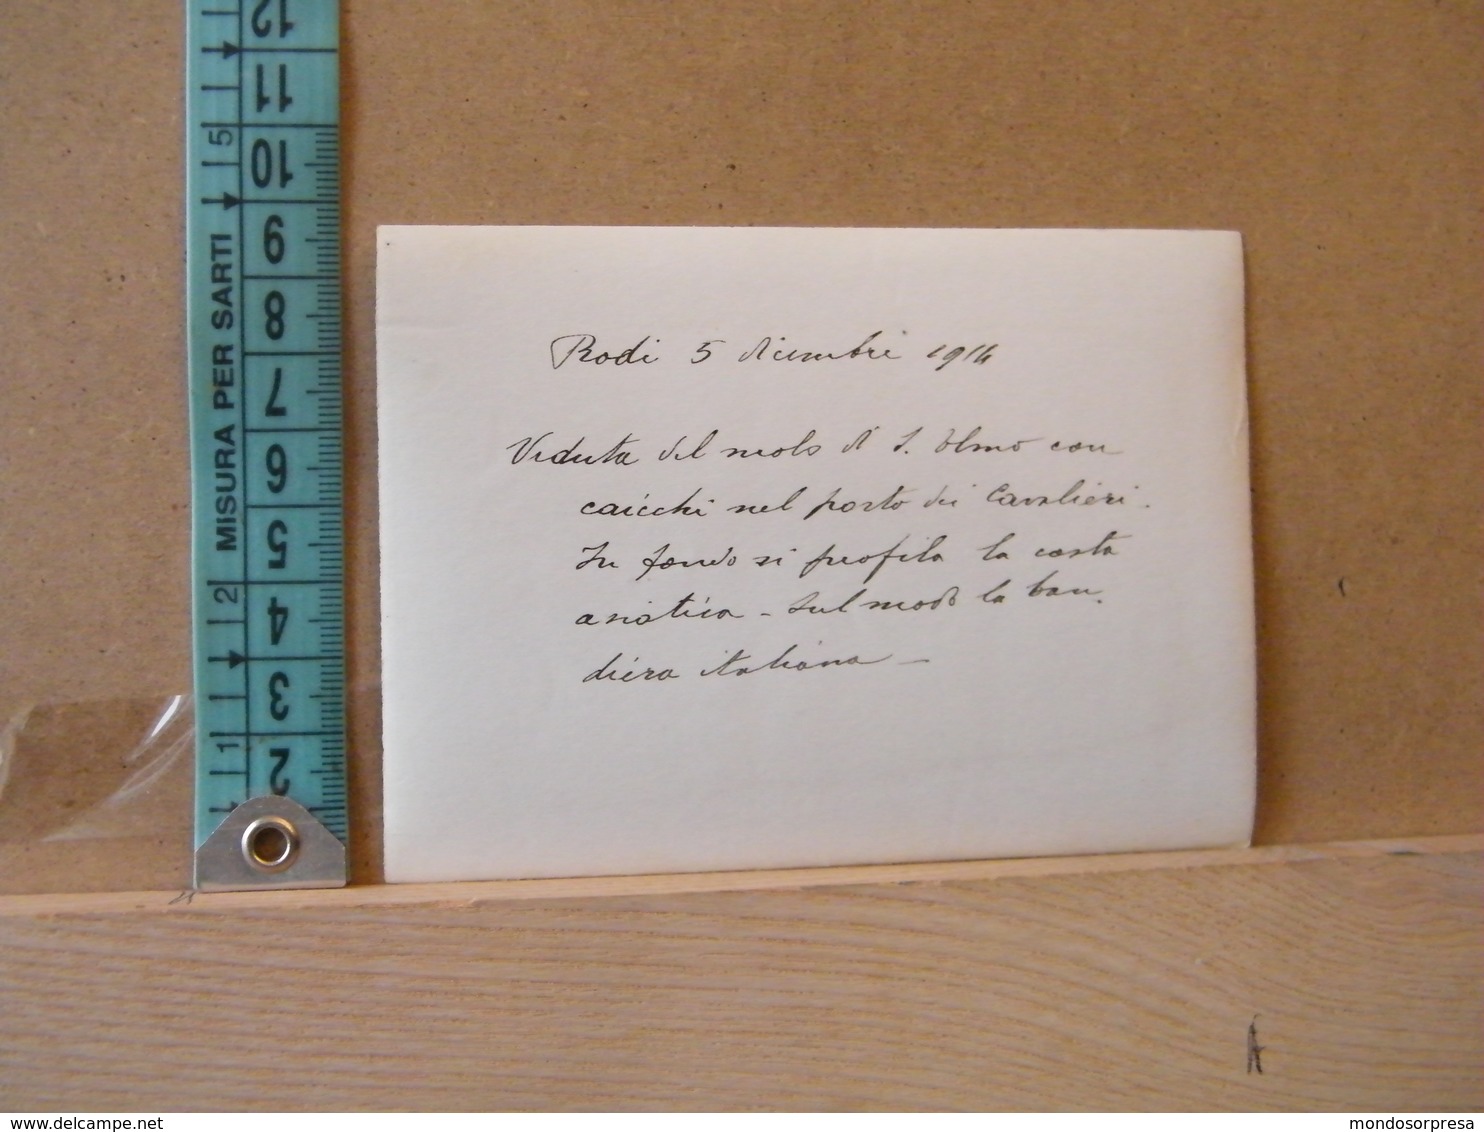 12
11
10
9
8
7
6
5
4
3
2
5
MISURA PER SARTI
2
1
Rodi 5 dicembre 1914
Veduta del molo di S. Elmo con
caicchi nel porto dei Cavalieri.
In fondo si profila la costa
asiatica - Sul molo la ban-
diera italiana -
A
www.delcampe.net
mondosorpresa